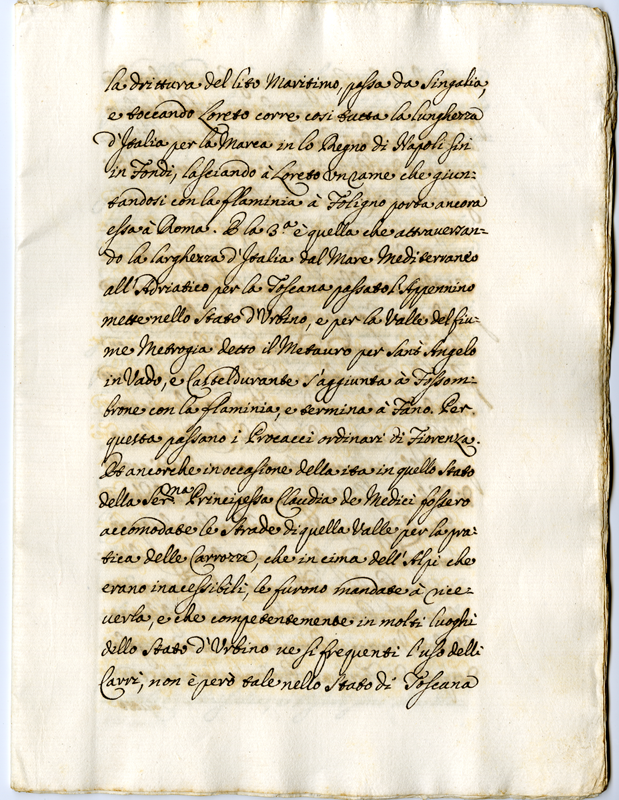 la drittura del lito Maritimo, passa da Singalia,
e toccando Loreto corre così tutta la lunghezza
d'Italia per la Marca in lo Regno di Napoli sin
in Fondi, lasciando à Loreto un rame che giun-
tandosi con la flaminia à Foligno porta ancora
essa à Roma. E la 3.a è quella che attraversan-
do la larghezza d'Italia dal Mare Mediterraneo
all'Adriatico per la Toscana passato l'Appennino
mette nello Stato d'Urbino, e per la Valle del fiu-
me Metrogia detto il Metauro per Sant'Angelo
in Vado, e Casteldurante s'aggiunta à Fossom-
brone con la flaminia, e termina à Fano. Per
questa passano i Procacci ordinari di Fiorenza.
Et ancorche in occasione della ita in quello Stato
della Ser.ma Principessa Claudia de Medici fossero
accomodate le Strade di quella Valle per la pra-
tica delle Carrozze, che in cima dell'Alpi che
erano inacessibili, le furono mandate à rice-
verla, e che competentemente in molti luoghi
dello Stato d'Urbino ve si frequenti l'uso delli
Carri, non è però tale nello Stato di Toscana